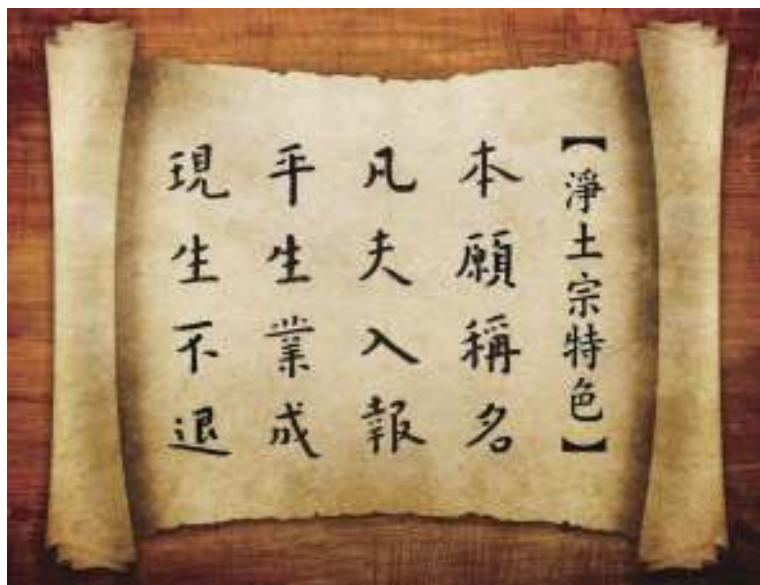 【淨土宗特色】
本願稱名
凡夫入報
平生業成
現生不退